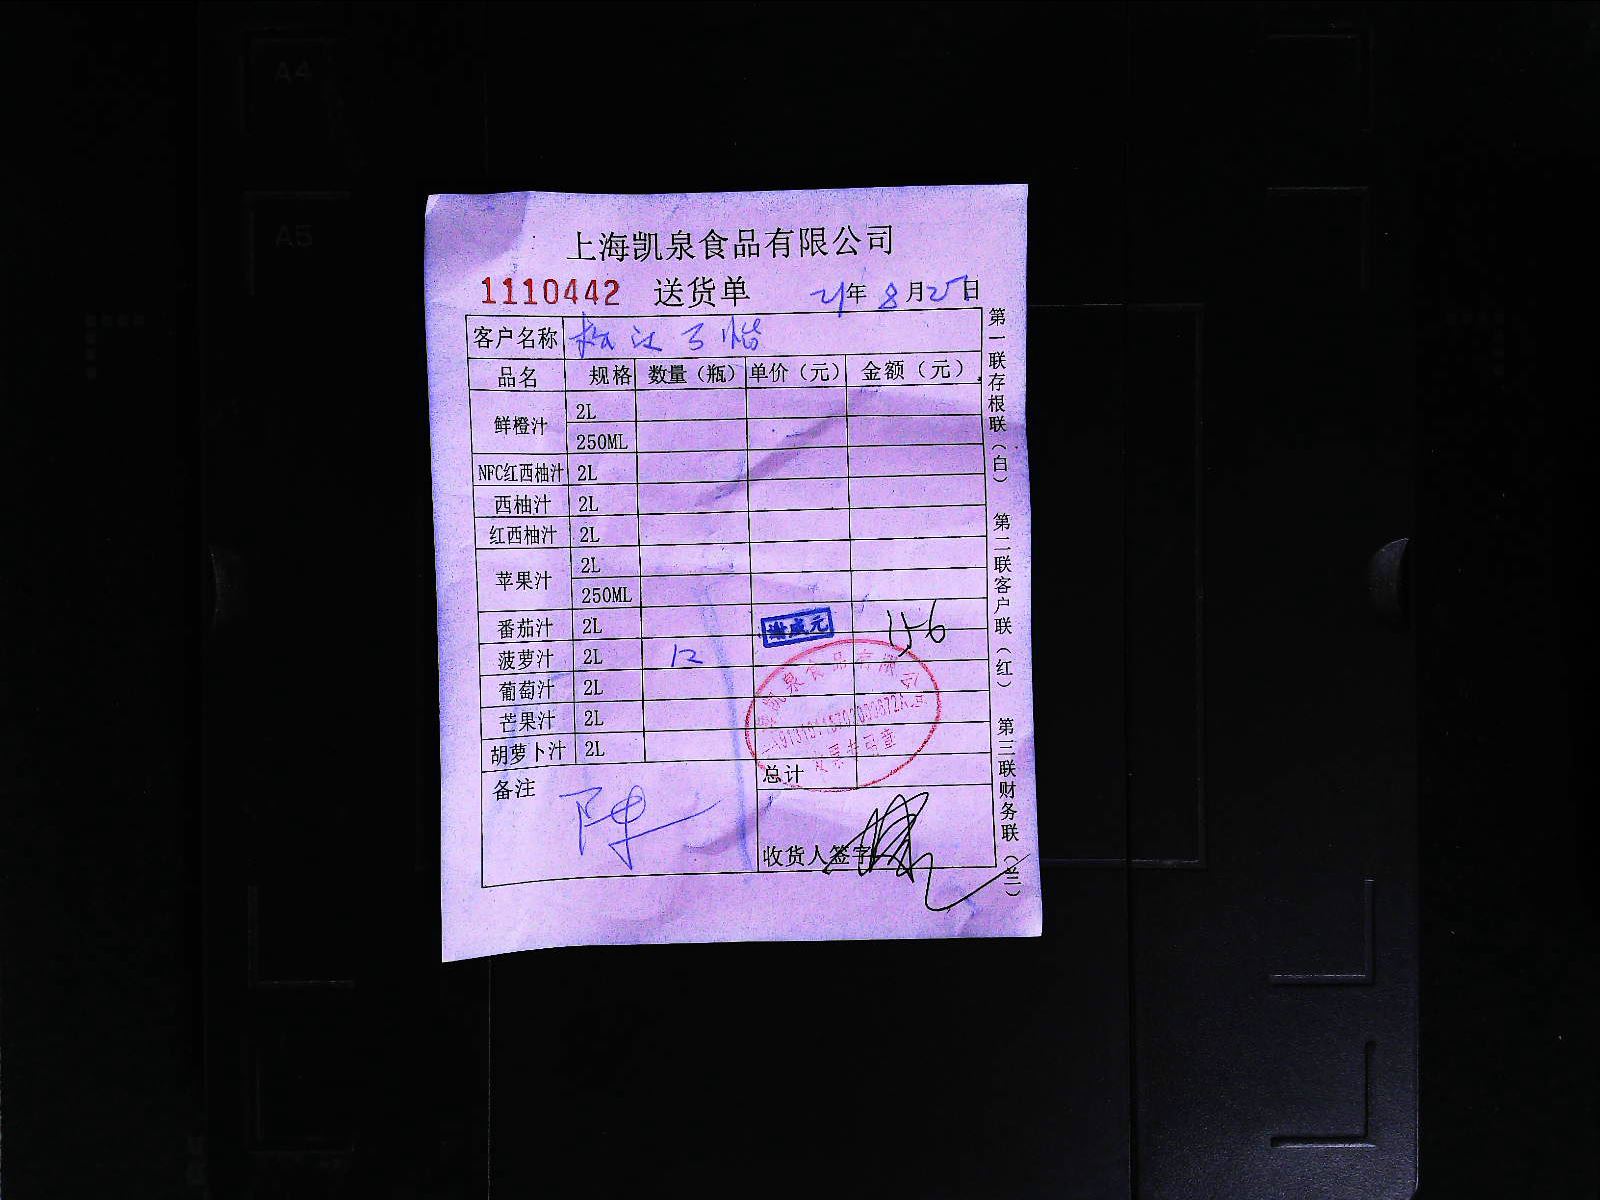 A4
A5
上海凯泉食品有限公司
1110442 送货单 21年8月25日
客户名称 松江
品名 规格 数量（瓶） 单价（元） 金额（元）
鲜橙汁 2L
250ML
NFC红西柚汁 2L
西柚汁 2L
红西柚汁 2L
苹果汁 2L
250ML
番茄汁 2L 谢成元 156
菠萝汁 2L 12
葡萄汁 2L
芒果汁 2L
胡萝卜汁 2L
凯泉食品有限公司
发票专用章
总计
备注 陈
收货人签字
第一联存根联（白） 第二联客户联（红） 第三联财务联（兰）